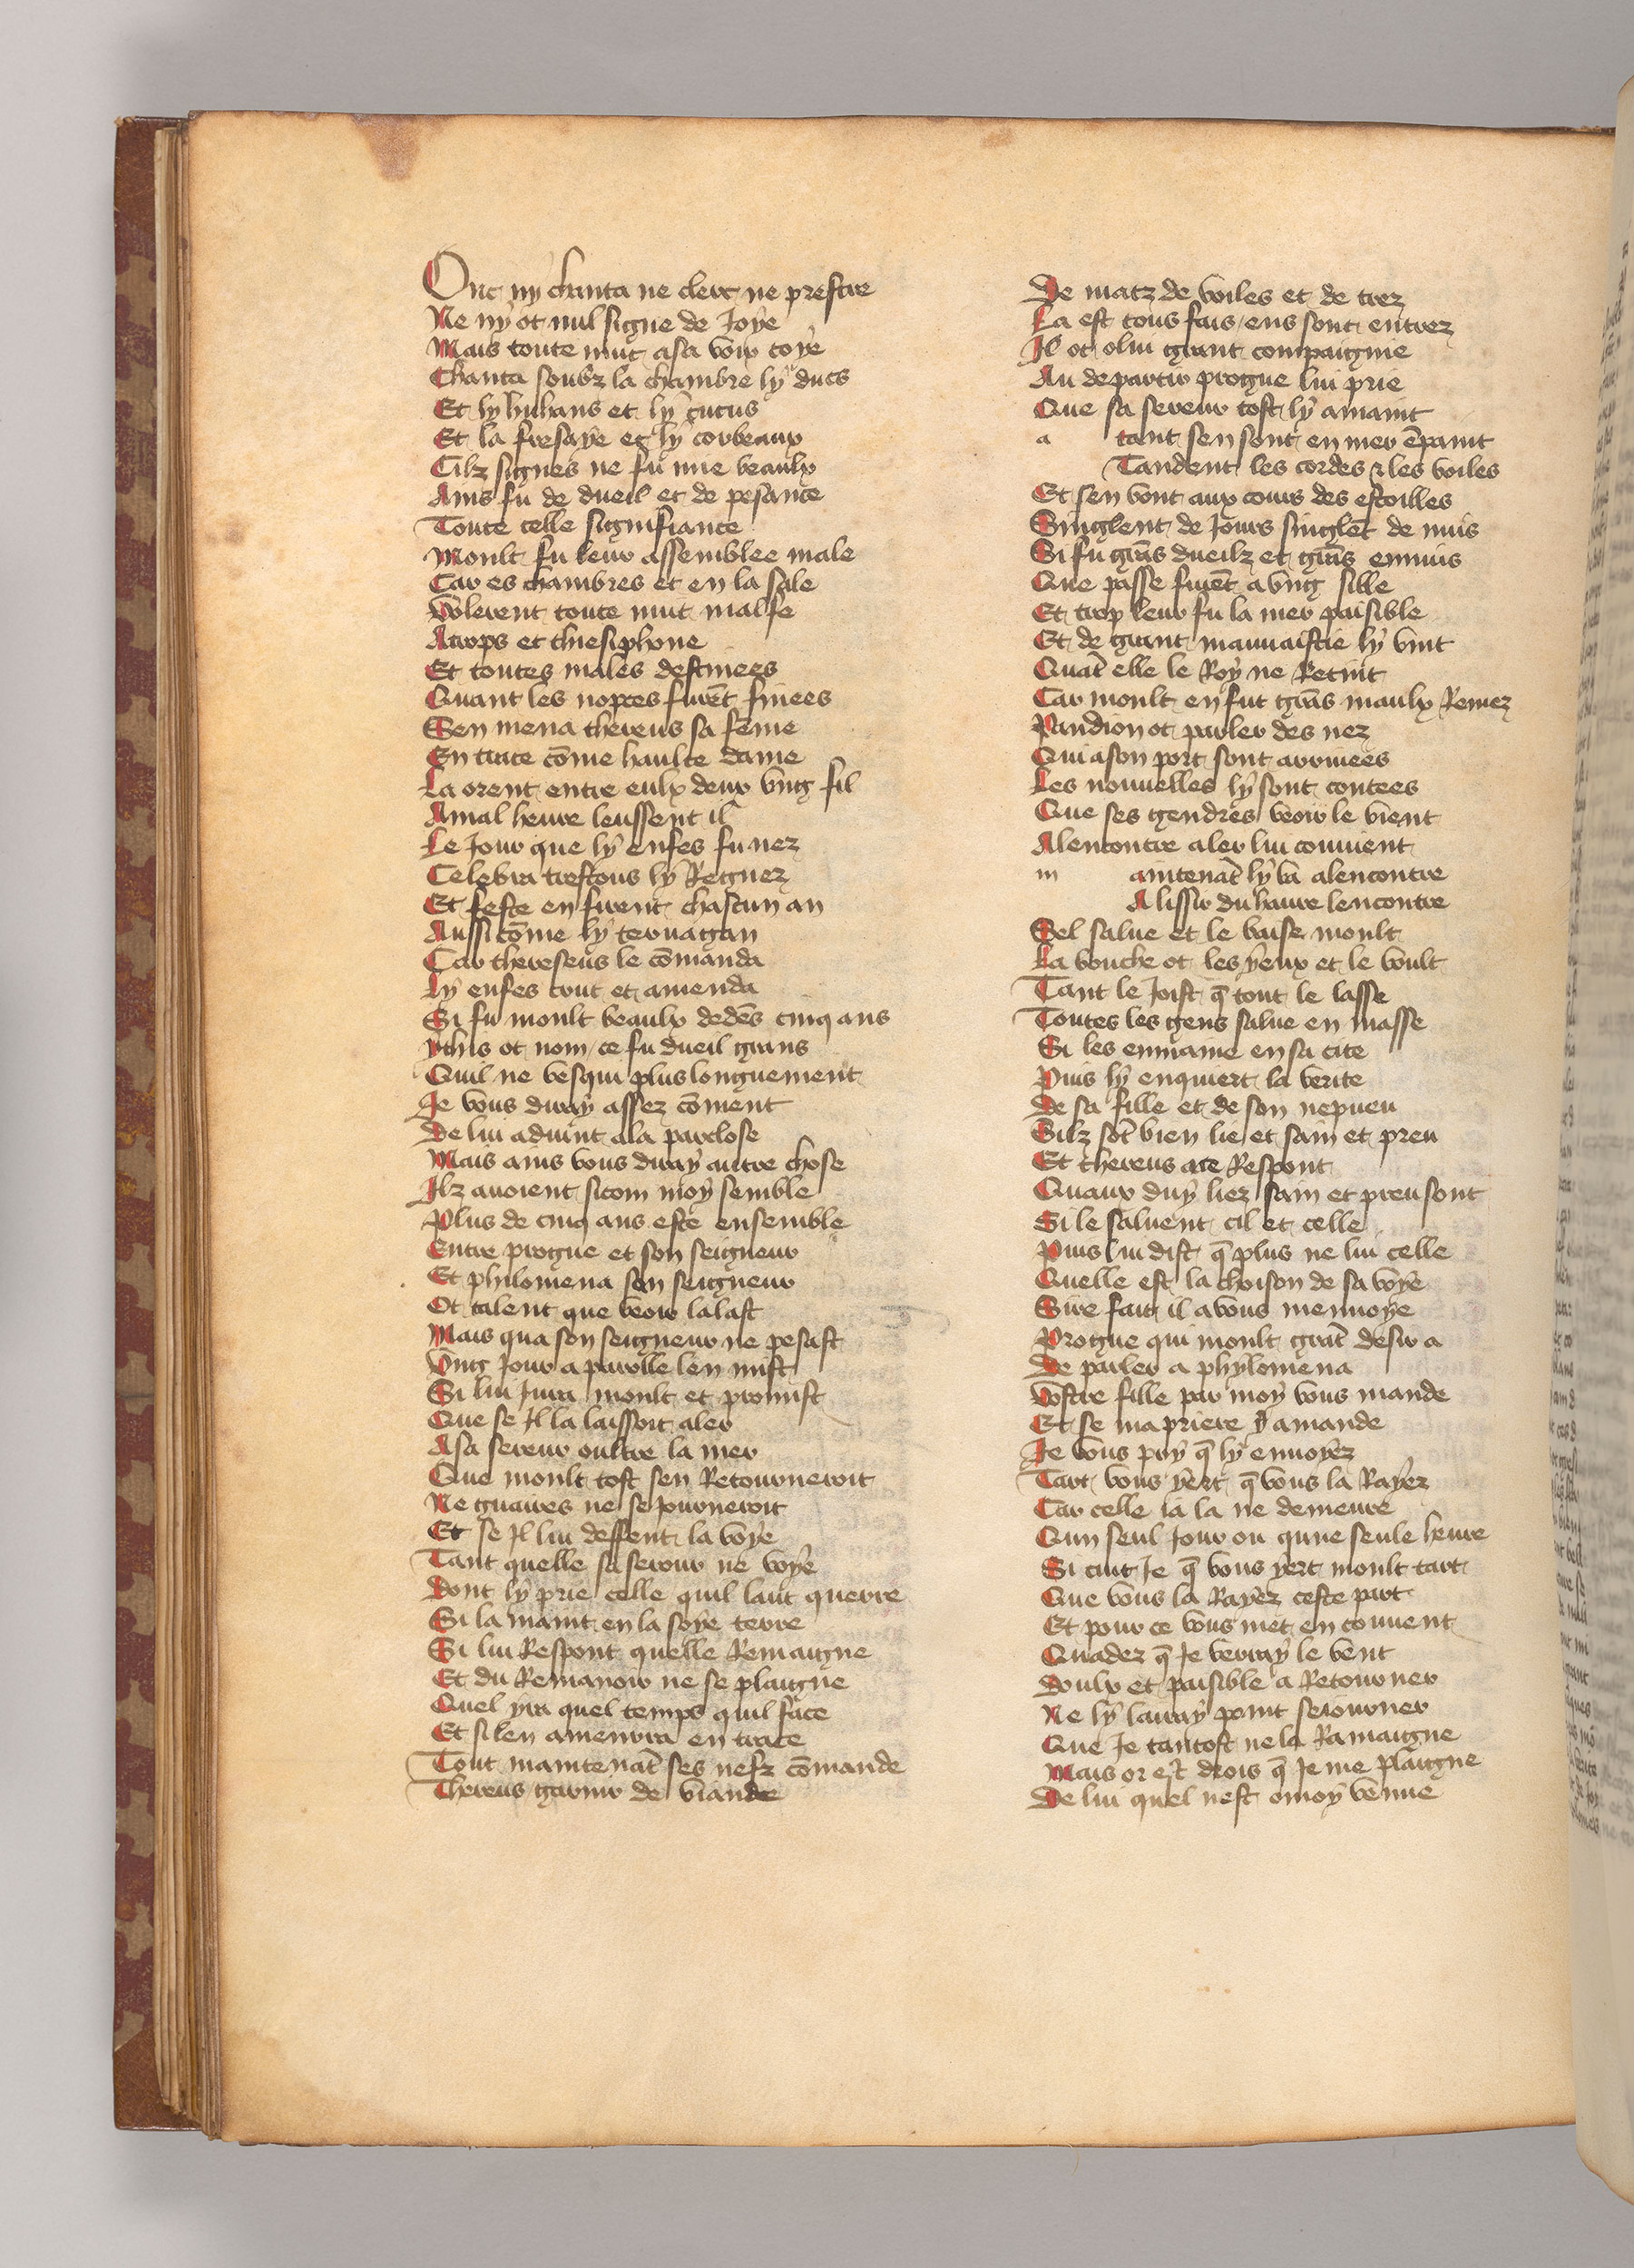 Onc ny chanta ne clerc ne prestre
Ne ny ot nul signe de Joye
Mais toute nuit a sa voix coye
Chanta soubz la chambre ly ducs
Et ly huhans et ly cucus
Et la fresaye et ly corbeaux
Cilz signes ne fu mie beaulx
Ains fu de dueil et de pesance
Toute celle signifiance
Moult fu leur assemblee male
Car es chambres et en la sale
Volerent toute nuit malfe
Atrops et thiesiphone
Et toutes males destinees
Quant les nopces furēt finees
Sen mena thereus sa feme
En trace cōme haulte dame
La orent entre eulx deux vng fil
A mal heure leussent il
Le Jour que ly enfes fu nez
Celebra trestous ly Regnez
Et feste en firent chascun an
Aussi cōme ly teruagan
Car thereseus le cōmanda
Ly enfes crut et amenda
Si fu moult beaulx dedēs cinq ans
ythis ot nom / ce fu dueil grans
Quil ne vesqui plus longuement
Je vous diray assez cōment
De lui aduint a la parclose
Mais ains vous diray autre chose
Ilz auoient si com moy semble
Plus de cinq ans este ensemble
Entre progne et son seigneur
Et philomena son seigneur
Ot talent que veoir lalast
Mais qua son seigneur ne pesast
Vng Jour a parolle len mist
Si lui Jura moult et promist
Que se Il la laissoit aler
A sa sereur oultre la mer
Que moult tost sen Retourneroit
Ne guaires ne seJourneroit
Et se Il lui deffent la voye
Tant quelle sa serour ne voye
Dont ly prie celle quil laut querre
Si la maint en la soye terre
Si lui Respont quelle Remaigne
Et du Remanoir ne se plaigne
Quel yra quel temps quil face
Et si len amenrra en trace
Tout maintenāt ses nefz cōmande
Thereus garnir de viande
De matz de voiles et de trez
La est tous fais / ens sont entrez
Il ot o lui grant compaignie
Au departir progne lui prie
Que sa sereur tost ly amaint
a tant sen sont en mer ēpaint
Tandent les cordes & les voiles
Et sen vont aux cours des estoilles
Singlent de Jours singlēt de nuis
Si fu grās dueilz et grās ennuis
Que passe furēt a vng sille
Et trop leur fu la mer paisible
Et de grant mauuaistie ly vint
Quāt elle le Roy ne Retint
Car moult en fut grās maulx Remez
Pandion ot parler des nez
Qui a son port sont arriuees
Les nouuelles ly sont contees
Que ses gendres veoir le vient
Alencontre aler lui conuient
m aintenāt ly va alencontre
A lissir du haure lencontre
Sel salue et le baise moult
La bouche ot les yeux et le voult
Tant le Joist q̄ tout le lasse
Toutes les gens salue en masse
Si les enmaine en sa cite
Puis ly enquiert la verite
De sa fille et de son nepueu
Silz sōt bien lie et sain et preu
Et thereus ace Respont
Quaux duy liez sain et preu sont
Si le saluent cil et celle
Puis lui dist q̄ plus ne lui celle
Quelle est la choison de sa voye
Sire fait il a vous menuoye
Progne qui moult grāt desir a
De parler a phylomena
Vostre fille par moy vous mande
Et se ma priere y amande
Je vous pry q̄ ly enuoyez
Tart vous yert q̄ vous la Rayez
Car celle ia la ne demeure
Qun seul Jour ou qune seule heure
Si cuit Je q̄ vous yert moult tart
Que vous la Rayez ceste part
Et pour ce vous met en conuent
Quadez q̄ Je verray le vent
Doulx et paisible a Retourner
Ne ly lairay point seiourner
Que Je tantost ne la Ramaigne
Mais or est drois q̄ Je me plaigne
De lui quel nest o moy venue